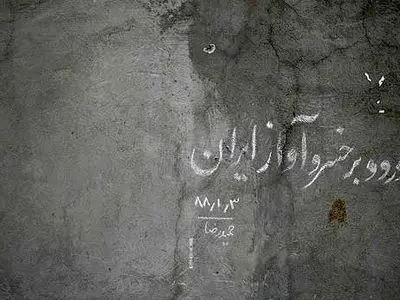 درود بر خسرو آواز ایران
۸۸/۱/۳
حمیدرضا